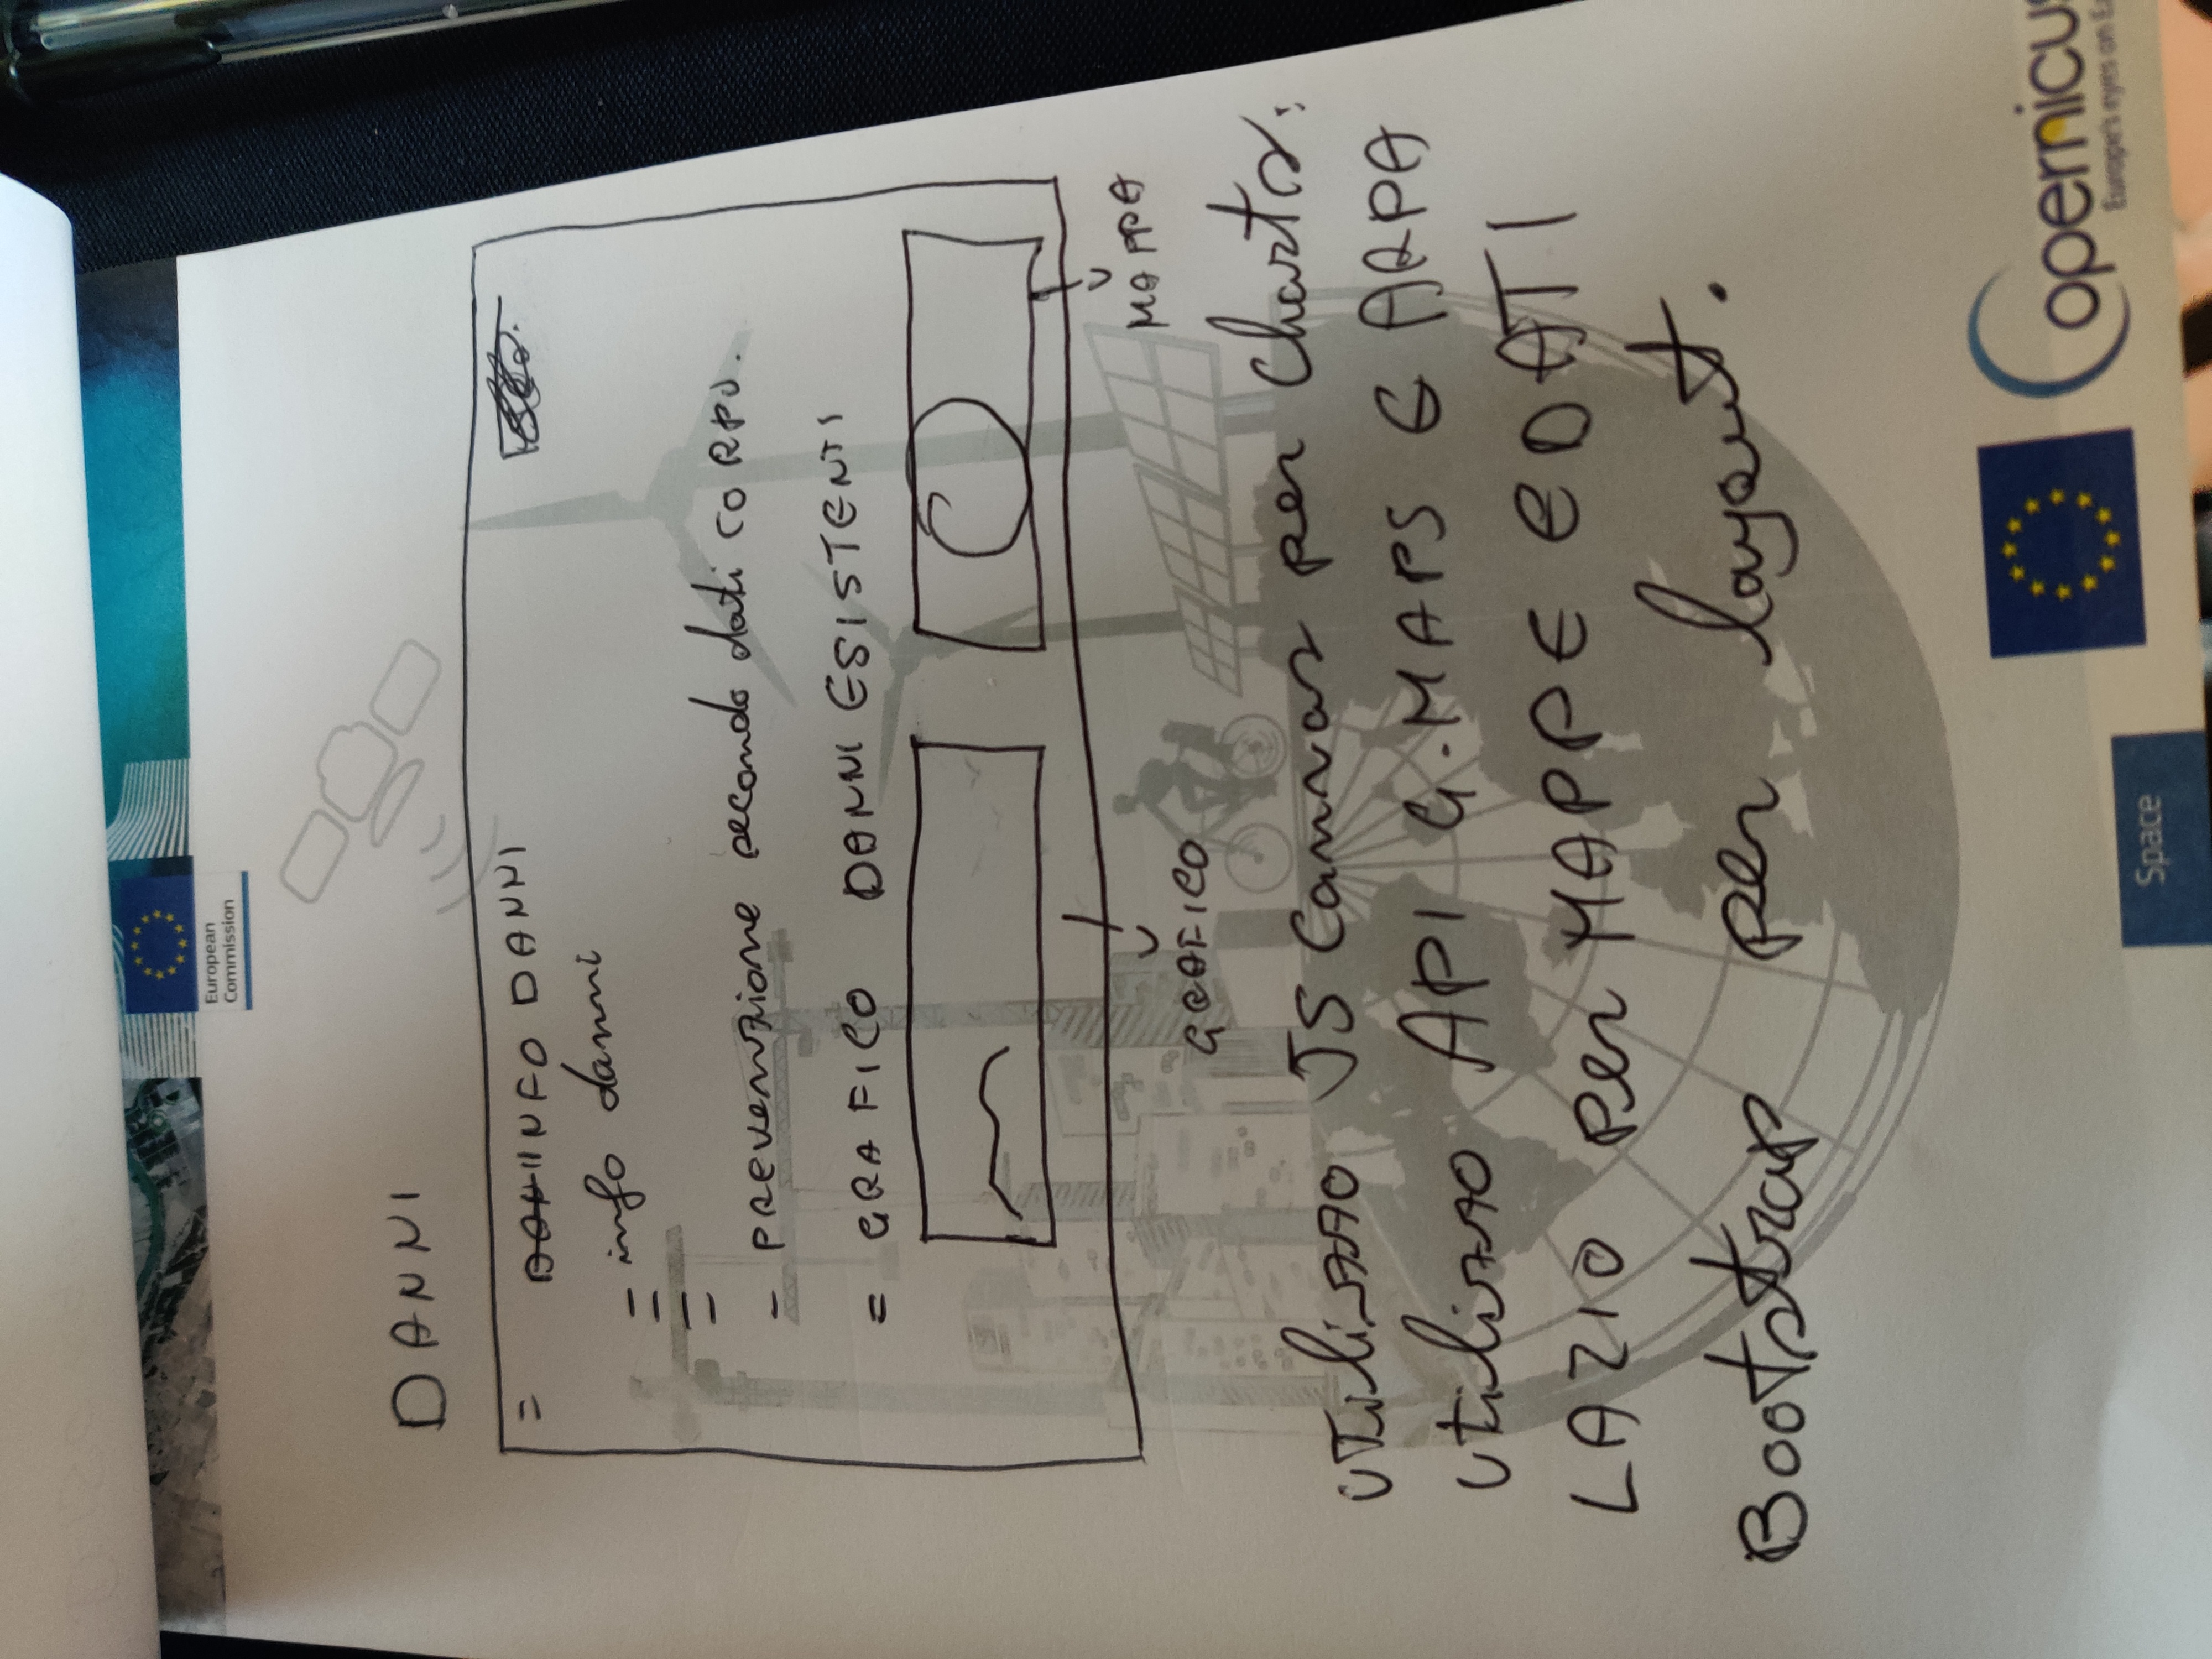 European
Commission
DANNI
= INFO DANNI
- info danni
- PREVENZIONE secondo dati CORPU.
= GRAFICO DANNI ESISTENTI
MAPPA
GRAFICO
Utilizzo JS Cannvas per Charts.
Utilizzo API G.MAPS E ARPA
LAZIO per MAPPE E DATI
Bootstrap per layout.
Copernicus
Europe's eyes on Ea
Space